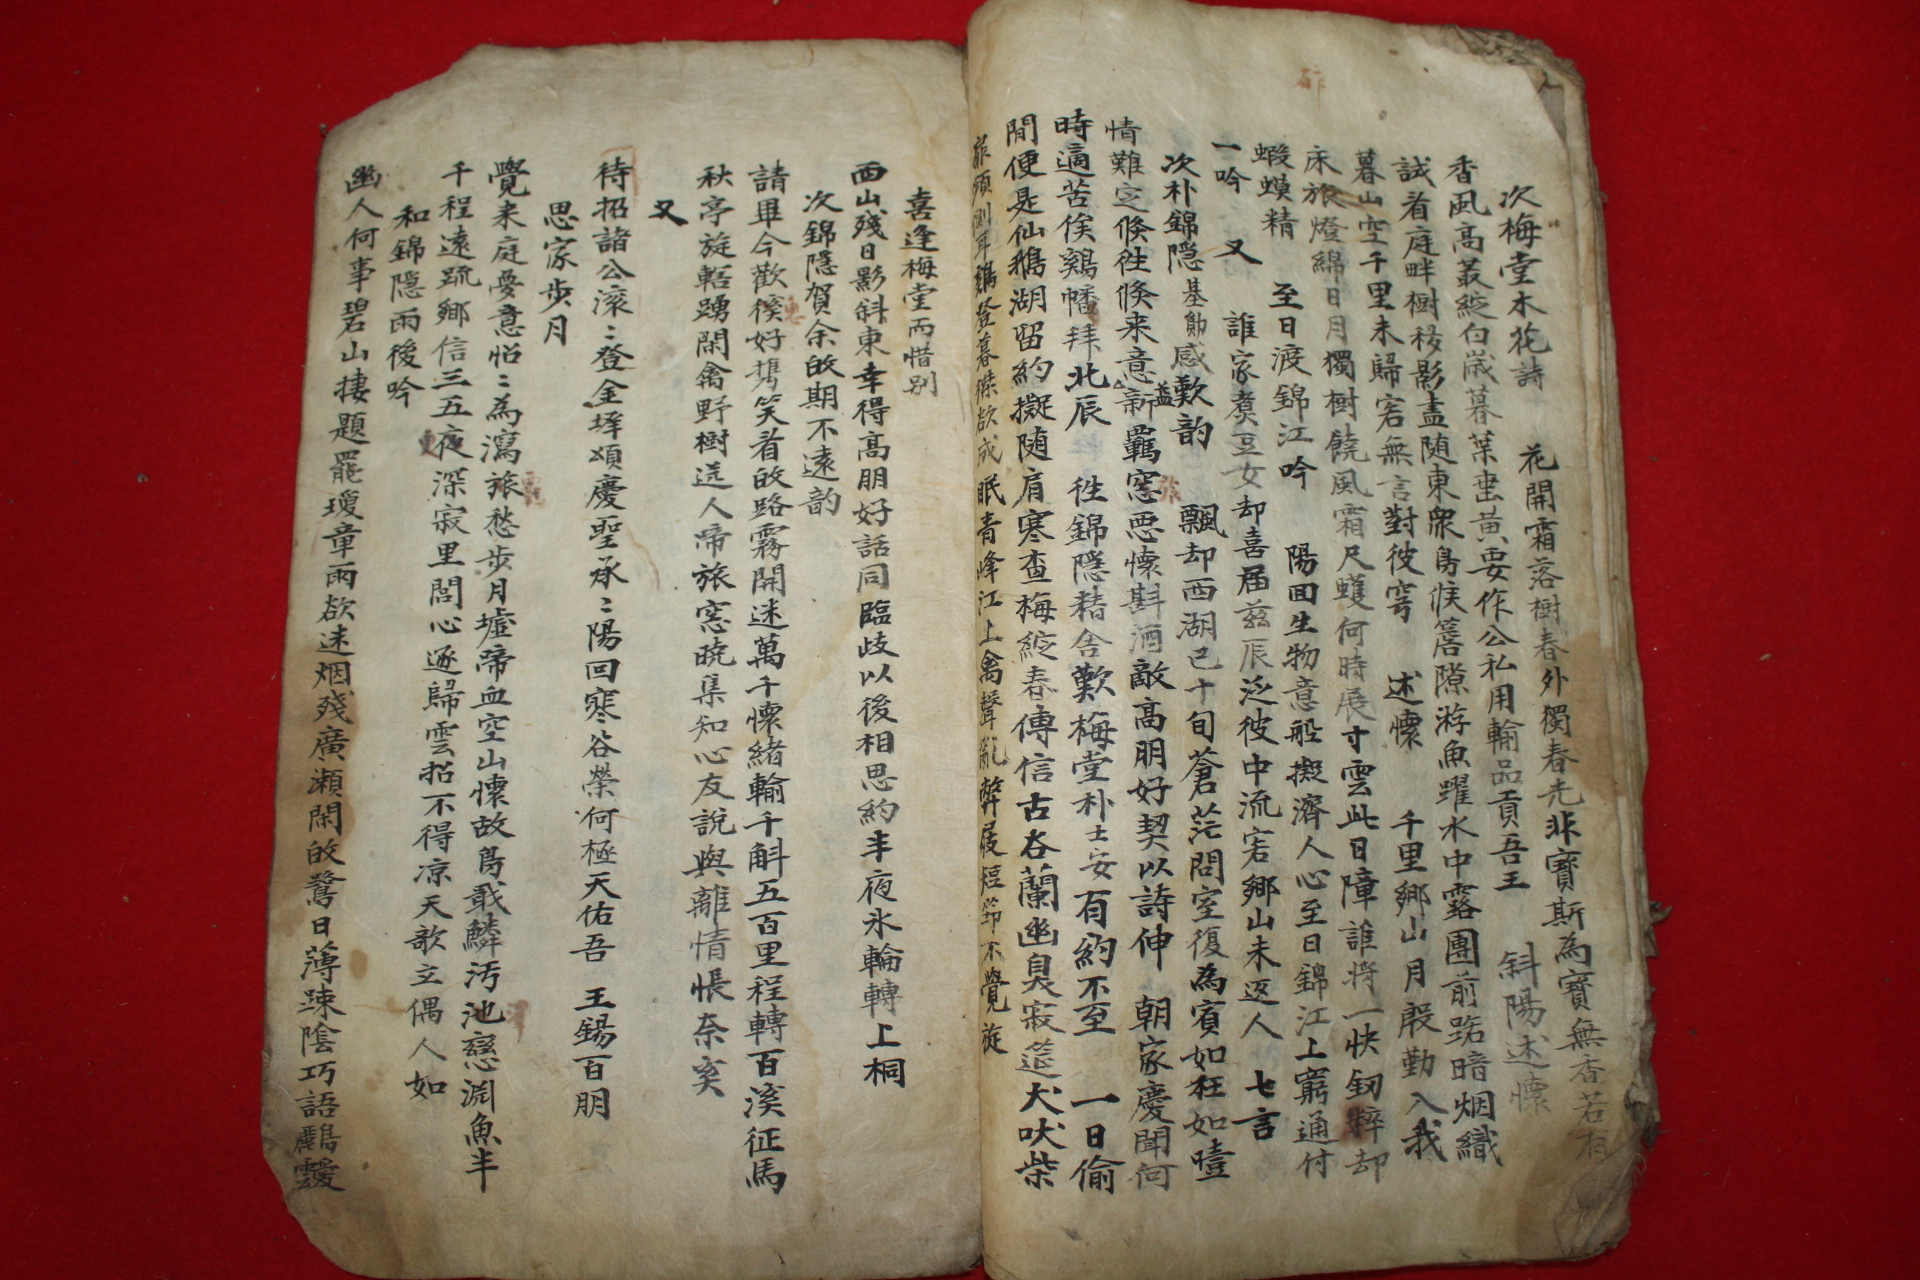 次梅堂木花詩 花開霜落樹春外獨春先非寶斯為寶無香若有
香風高叢綻白歲暮葉垂黃要作公私用輸品貢吾王 斜陽述懷
試看庭畔樹移影盡隨東衆鳥 隙游魚躍水中露團前 暗烟織
暮山空千里未歸客無言對彼穹 述懷 千里鄉山月殷勤入我
床旅燈綿日月獨樹饒風霜尺蠖何時展寸雲此日障誰將一快釼粹却
蝦蟆精 至日渡錦江吟 陽回生物意船擬濟人心至日錦江上窮通付
一吟 又 誰家煮豆女却喜届茲辰泛彼中流客鄉山未返人 七言
次朴錦隱基勛感歎韵 飄却西湖已十旬蒼茫問室復為賓如枉如噎
情難定倏徃倏来意新羈窓悪懷斟酒敵高朋好契以詩伸 朝家慶聞何
時適苦俟鷄幡拜北辰 徃錦隱精舍歎梅堂朴士安有約不至 一日偷
閒便是仙鵝湖留約擬随肩寒査梅綻春傳信古谷蘭幽臭寂筵犬吠柴
扉頻側耳鷄登暮榤欲成眠青峰江上禽聲亂弊屐短節不覺旋
喜逢梅堂而惜别
西山殘日影斜東幸得高朋好話同臨歧以後相思約半夜氷輪轉上桐
次錦隱賀余啟期不遠韵
請畢今歡後好携笑看啟路霧開迷萬千懷緒輸千斛五百里程轉百溪征馬
秋亭旋轄踴閑禽野樹送人啼旅窓曉集知心友説與離情悵奈奚
又
待招諸公滚〻登金墀頌慶聖承〻陽回寒谷榮何極天佑吾 王錫百朋
思家步月
覺来庭憂意怡〻為瀉旅愁步月墟啼血空山懷故鳥戢鱗汚池戀淵魚半
千程遠疏鄉信三五夜深寂里閭心逐歸雲招不得凉天歌立偶人如
和錦隱雨後吟
幽人何事碧山棲題罷瓊章雨欲迷烟殘廣瀬閑啟鷺日薄踈陰巧語鸝